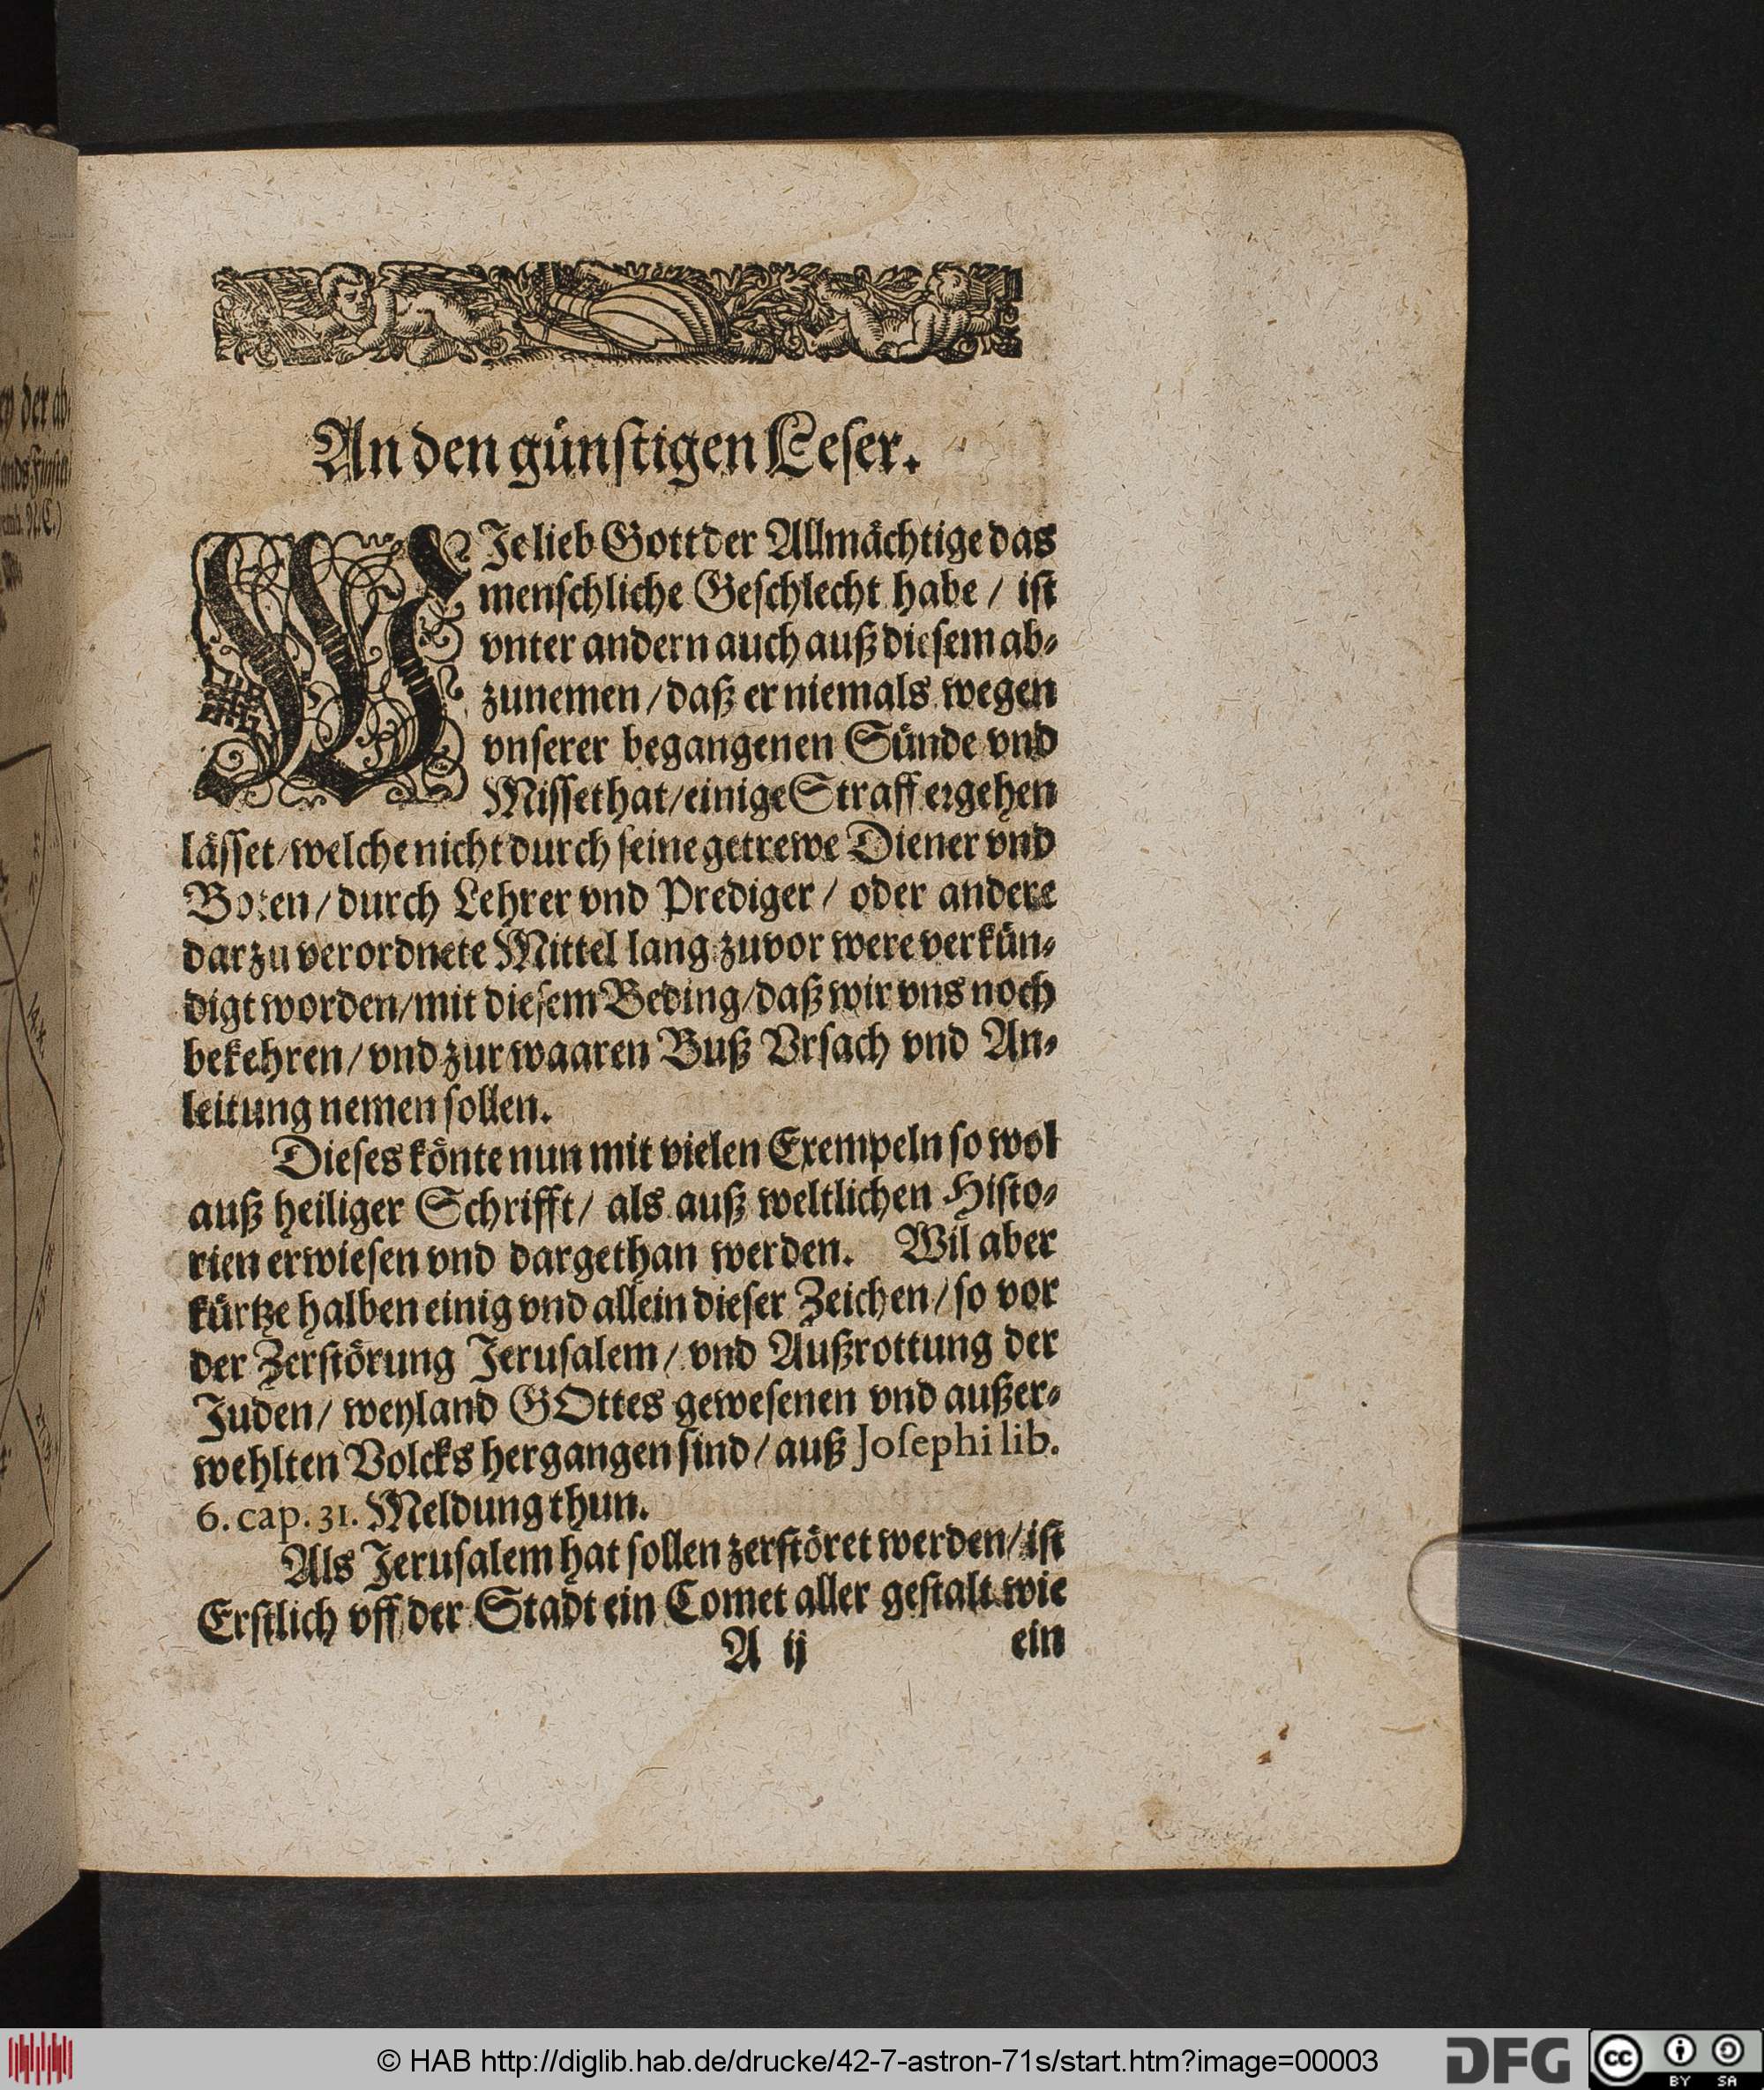 An den günstigen Leser.
WJe lieb Gott der Allmächtige das
menschliche Geschlecht habe / ist
vnter andern auch auß diesem ab⸗
zunemen / daß er niemals wegen
vnserer begangenen Sünde vnd
Missethat / einige Straff ergehen
lässet / welche nicht durch seine getrewe Diener vnd
Boten / durch Lehrer vnd Prediger / oder andere
darzu verordnete Mittel lang zuvor were verkün⸗
digt worden / mit diesem Beding / daß wir vns noch
bekehren / vnd zur waaren Buß Vrsach vnd An⸗
leitung nemen sollen.
Dieses könte nun mit vielen Exempeln so wol
auß heiliger Schrifft / als auß weltlichen Histo⸗
rien erwiesen vnd dargethan werden. Wil aber
kürtze halben einig vnd allein dieser Zeichen / so vor
der Zerstörung Jerusalem / vnd Außrottung der
Juden / weyland GOttes gewesenen vnd außer⸗
wehlten Volcks hergangen sind / auß Josephi lib.
6. cap. 31. Meldung thun.
Als Jerusalem hat sollen zerstöret werden / ist
Erstlich vff der Stadt ein Comet aller gestalt wie
A ij ein
© HAB http://diglib.hab.de/drucke/42-7-astron-71s/start.htm?image=00003
DFG
cc BY SA